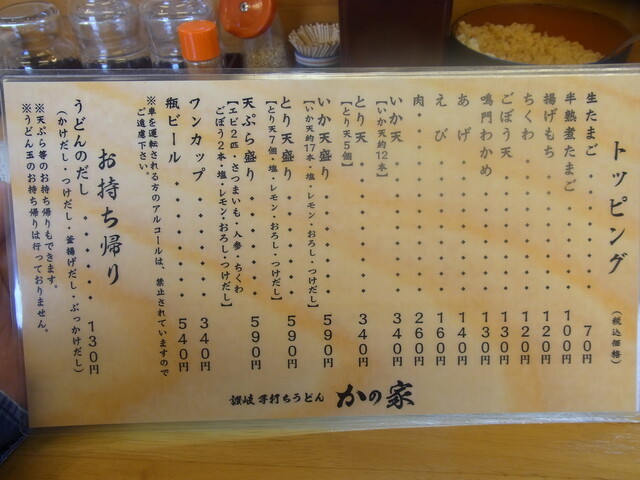 トッピング
（税込価格）
生たまご・・・・・・・・70円
半熟煮たまご・・・・・・100円
揚げもち・・・・・・・・120円
ちくわ・・・・・・・・・120円
ごぼう天・・・・・・・・130円
鳴門わかめ・・・・・・・130円
あげ・・・・・・・・・・140円
えび・・・・・・・・・・160円
肉・・・・・・・・・・・260円
いか天・・・・・・・・・340円
【いか天約12本】
とり天・・・・・・・・・340円
【とり天5個】
いか天盛り・・・・・・・590円
【いか天約17本・塩・レモン・おろし・つけだし】
とり天盛り・・・・・・・590円
【とり天7個・塩・レモン・おろし・つけだし】
天ぷら盛り・・・・・・・590円
【エビ2匹・さつまいも・人参・ちくわ
ごぼう2本・塩・レモン・おろし・つけだし】
ワンカップ・・・・・・・340円
瓶ビール・・・・・・・・540円
※車を運転される方のアルコールは、禁止されていますので
ご遠慮下さい。
お持ち帰り
うどんのだし・・・・・・130円
（かけだし・つけだし・釜揚げだし・ぶっかけだし）
※天ぷら等のお持ち帰りもできます。
※うどん玉のお持ち帰りは行っておりません。
讃岐手打ちうどん かの家